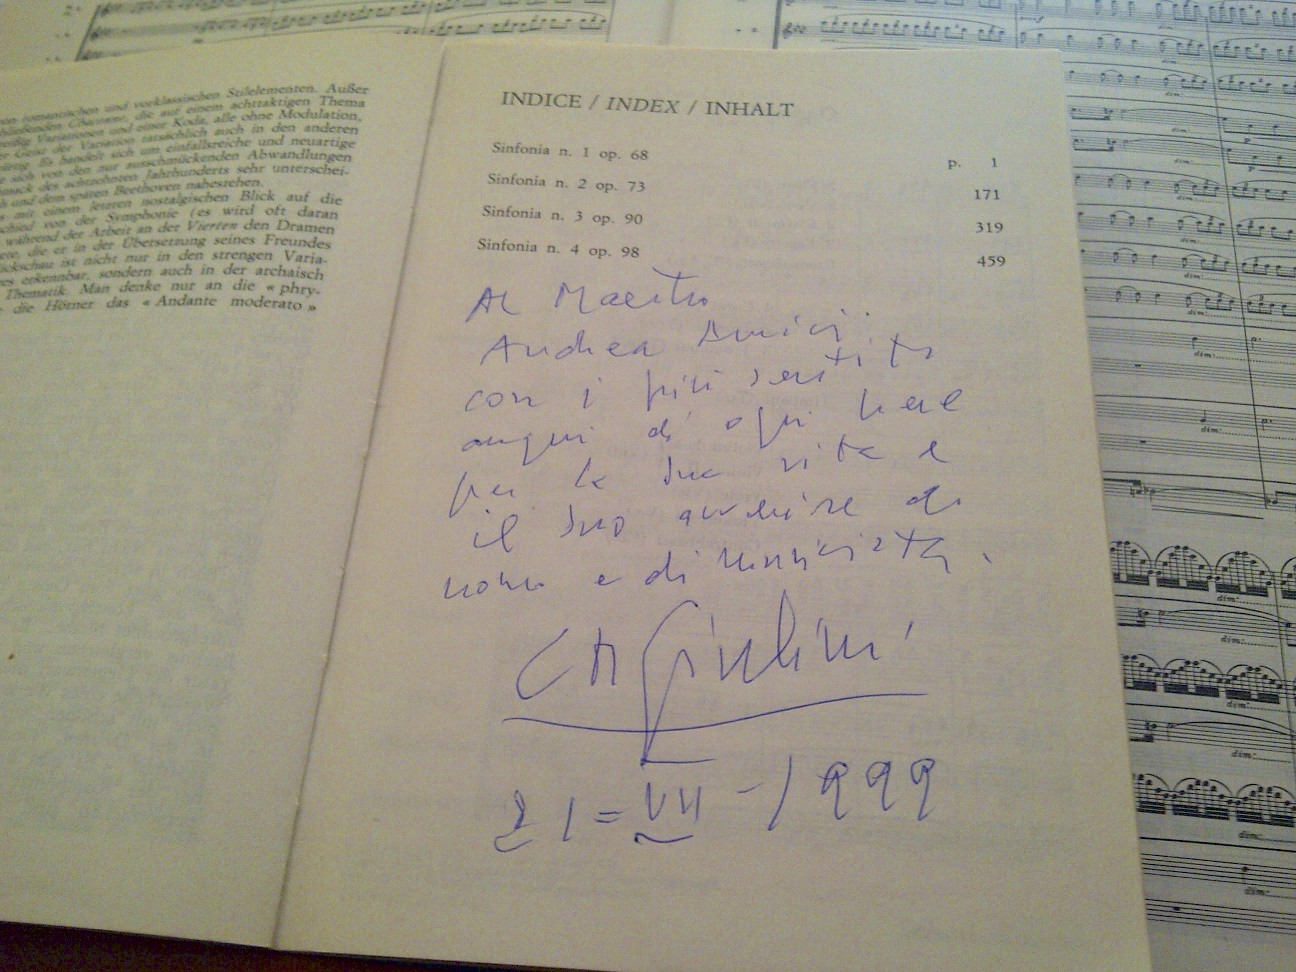 en romantischen und vorklassischen Stilelementen. Außer
schließenden Ciaconne, die auf einem achttaktigen Thema
dreißig Variationen und einer Koda, alle ohne Modulation,
er Geist der Variation tatsächlich auch in den anderen
Es handelt sich um einfallsreiche und neuartige
sich von den nur ausschmückenden Abwandlungen
des achtzehnten Jahrhunderts sehr unterschei-
und dem späten Beethoven nahestehen.
mit einem letzten nostalgischen Blick auf die
schied von der Symphonie (es wird oft daran
während der Arbeit an der Vierten den Dramen
die er in der Übersetzung seines Freundes
ückschau ist nicht nur in den strengen Varia-
es erkennbar, sondern auch in der archaisch
Thematik. Man denke nur an die « phry-
die Hörner das « Andante moderato »
INDICE / INDEX / INHALT
Sinfonia n. 1 op. 68 p. 1
Sinfonia n. 2 op. 73 171
Sinfonia n. 3 op. 90 319
Sinfonia n. 4 op. 98 459
Al Maestro
Andrea Amici
con i più sentiti
auguri di ogni bene
per la sua vita e
il suo avvenire di
uomo e di musicista.
CM Giulini
21 = VII - 1999
dim:
dim:
dim:
dim:
dim:
dim:
dim:
dim:
dim:
dim:
dim:
dim:
dim: